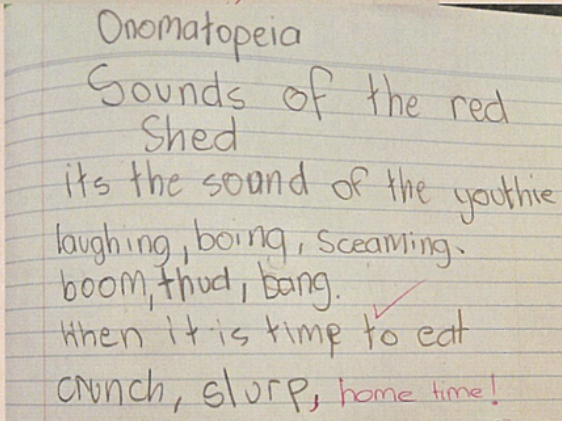 Onomatopeia
Sounds of the red
Shed
its the sound of the youthie
laughing, boing, sceaming.
boom, thud, bang.
When it is time to eat
crunch, slurp, home time!